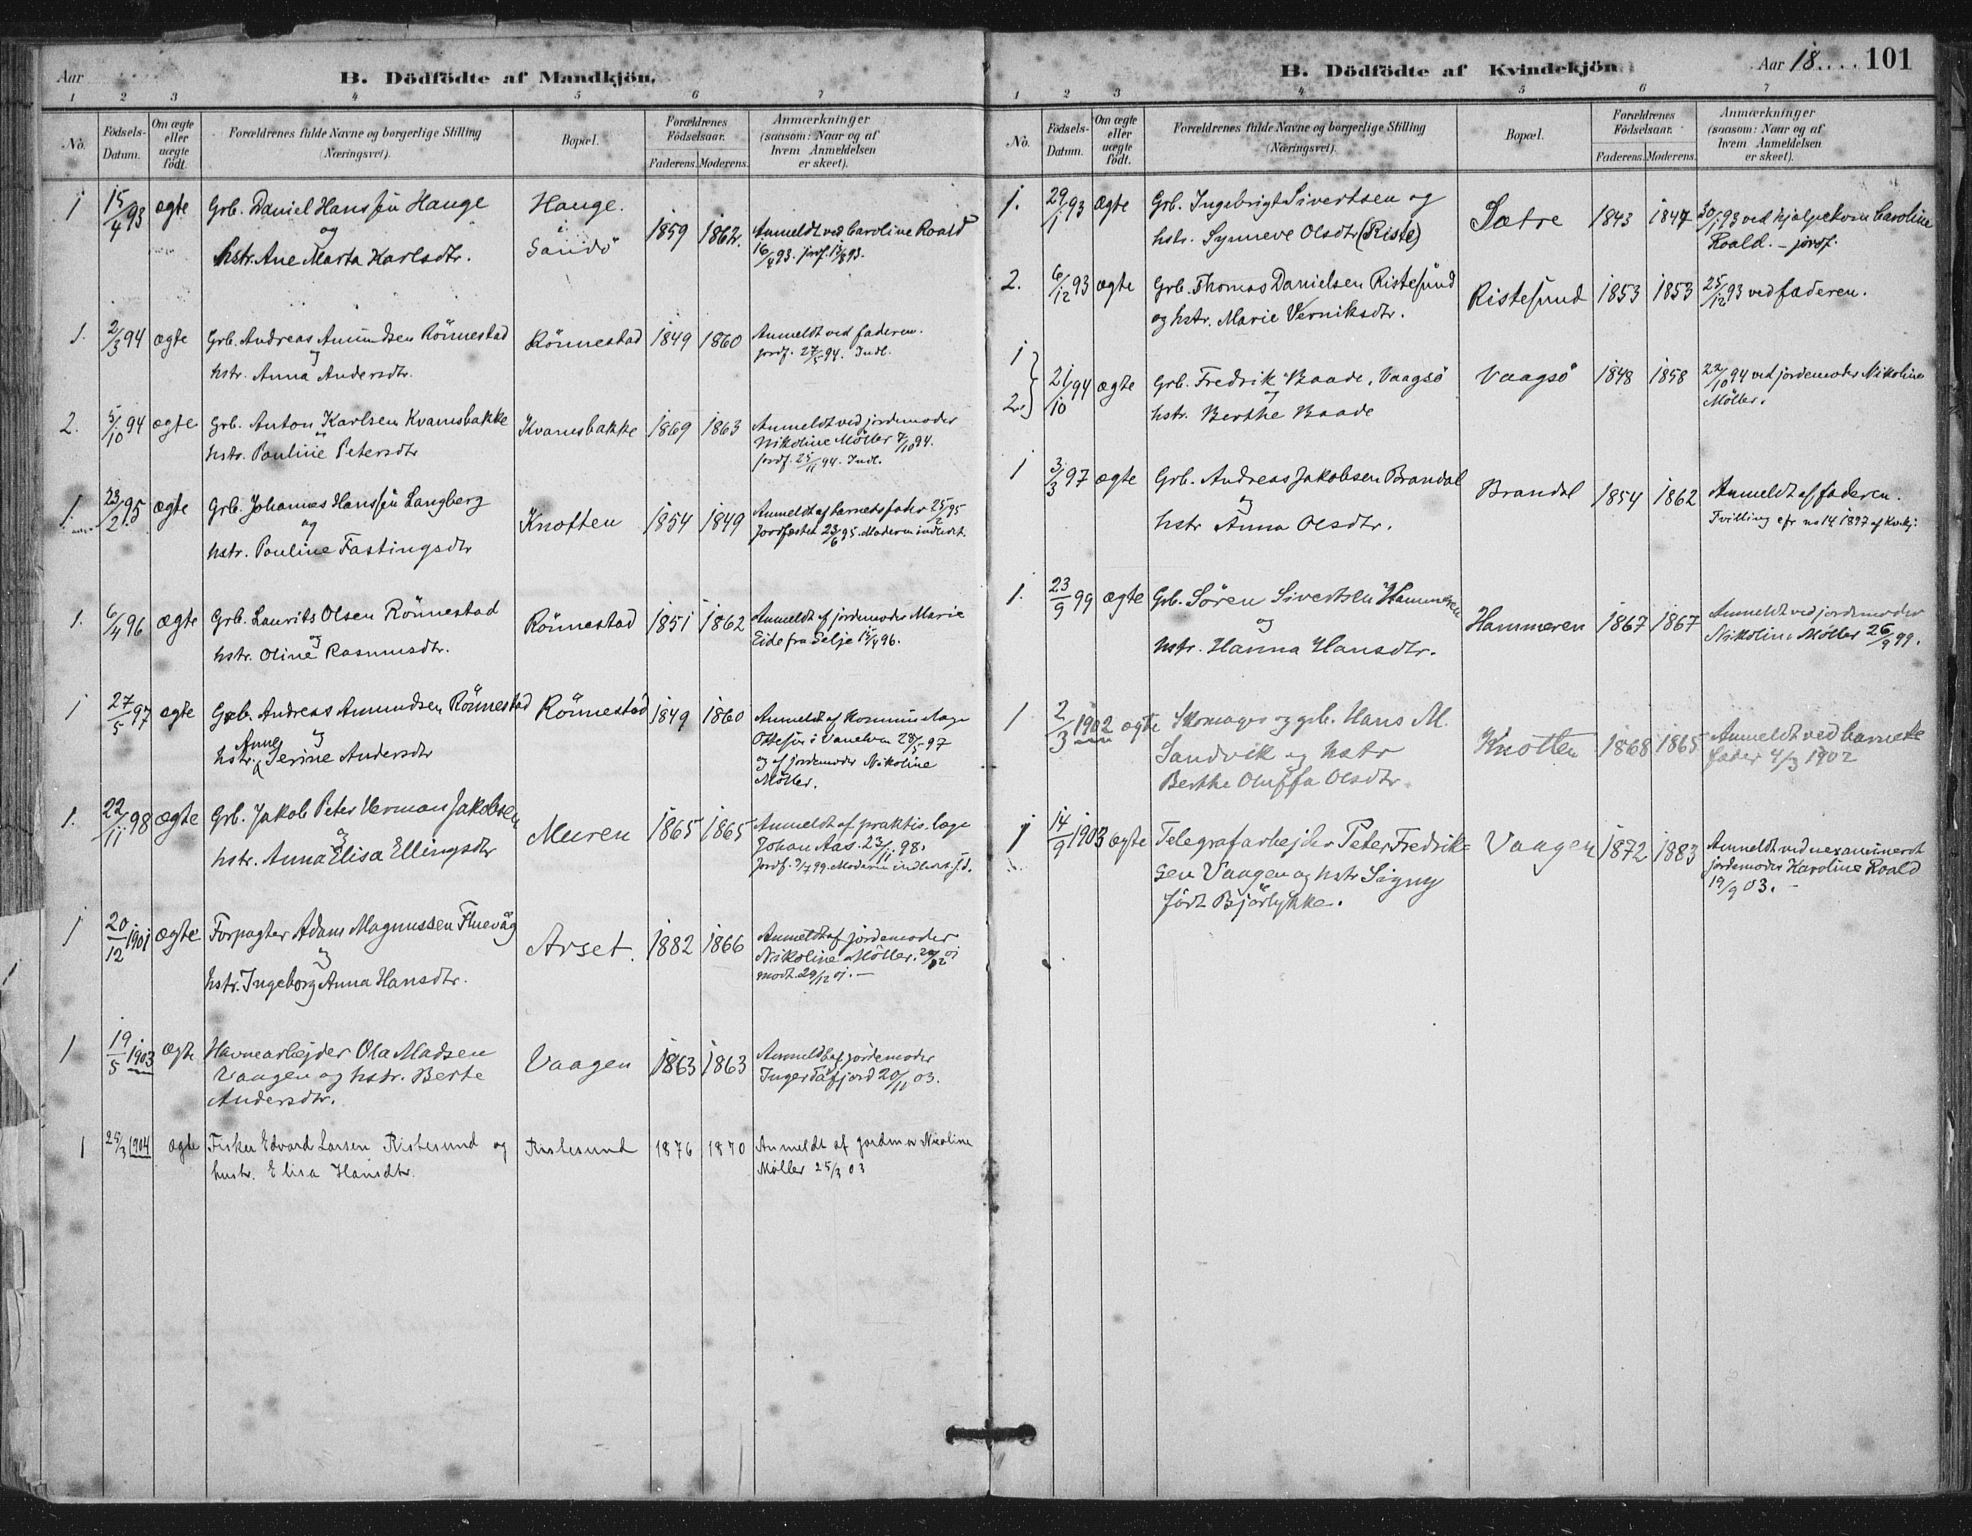 Aar
B. Dödfödte af Mandkjön.
1 2 3 4 5 6 7
No.
Fødsels-Datum.
Om ægte eller uægte født.
Forældrenes fulde Navne og borgerlige Stilling
(Næringsvei).
Bopæl.
Forældrenes Fødselsaar.
Faderens. Moderens.
Anmærkninger
(saasom: Naar og af
hvem Anmeldelsen
er skeet).
1 15/4 93 ægte Grb. Daniel Hanssøn Hauge Hauge. 1859 1862. Anmeldt ved Caroline Roald
og i 16/4 93. jordf.
hstr. Ane Marta Karlsdtr. Sandö
1. 2/3 94 ægte Grb. Andreas Amundsen Rönnestad Rönnestad 1849 1860 Anmeldt ved faderen.
og jordf. 27/5 94. Indl.
hstr. Anna Andersdtr.
2. 5/10 94 ægte Grb. Anton Karlsen Kvamsbakke Kvamsbakke 1869 1863 Anmeldt ved jordemoder
og Nikoline Möller 7/10 94.
hstr. Pauline Petersdtr jordf. 25/11 94. Indl.
1. 23/2 95 ægte Grb. Johannes Hanssøn Langberg Knotten 1854 1849 Anmeldt af barnets fader 25/2 95
og Jordfæstet 23/6 95. Moderen indledt.
hstr. Pauline Fastingsdtr
1. 6/4 96 ægte Grb. Laurits Olsen Rönnestad Rönnestad 1851 1862 Anmeldt af jordemoder Marie
og Eide fra Selje 15/4 96.
hstr. Oline Rasmusdtr.
1 27/5 97 ægte Grb. Andreas Amundsen Rönnestad Rönnestad 1849 1860 Anmeldt af Kommunelæge
og Ottesen i Vanelven 28/5 97
hstr. Anne Serine Andersdtr og af jordemoder Nikoline
Möller.
1. 22/11 98 ægte Grb. Jakob Peter Herman Jakobsen Muren 1865 1865 Anmeldt af praktis. læge
og Johan Aas. 23/11 98.
hstr. Anna Elisa Ellingsdtr Jordf. 9/7 99. Moderen indl. s. d.
1 20/12 1901 ægte Forpagter Adam Magnussen Fluevåg Arset. 1882 1866 Anmeldt af jordemoder
og Nikoline Möller. 29/12 01
hstr. Ingeborg Anna Hansdtr. modt. 29/12 01. —
1 19/5 1903 ægte Havnearbejder Ola Madsen Vaagen 1863 1863 Anmeldt af jordemoder
Vaagen og hstr. Berte Inger Tafjord 20/11 03.
Andersdtr.
1 25/3 1904 ægte Fisker Edvard Larsen Ristesund og Ristesund 1876 1870 Anmeldt af jordmor Nicoline
hustr. Elisa Hansdtr. Møller 25/3 03
B. Dödfödte af Kvindekjön
Aar 18.... 101
1 2 3 4 5 6 7
No.
Fødsels-Datum.
Om ægte eller uægte født.
Forældrenes fulde Navne og borgerlige Stilling
(Næringsvei).
Bopæl.
Forældrenes Fødselsaar.
Faderens. Moderens.
Anmærkninger
(saasom: Naar og af
hvem Anmeldelsen
er skeet).
1. 29/1 93 ægte Grb. Ingebrigt Sivertsen og Sætre 1843 1847 30/1 93 ved hjælpekom Caroline
hstr. Synneve Olsdtr (Riste) Roald. – jordf.
2. 6/12 93 ægte Grb. Thomas Danielsen Ristesund Ristesund 1853 1853 25/12 93 ved faderen.
og hstr. Marie Verniksdtr.
1
2. } 21/10 94 ægte Grb. Fredrik Baade, Vaagsö Vaagsö 1848 1858 22/10 94 ved jordemoder Nikoline
og Möller.
hstr. Berthe Baade
1 3/3 97 ægte Grb. Andreas Jakobsen Brandal Brandal 1854 1862 Anmeldt af faderen.
og Tvilling cfr no 14 1897 af Kvkj.
hstr Anna Olsdtr.
1. 23/9 99 ægte Grb. Sören Sivertsen Hammeren Hammeren 1867 1867 Anmeldt ved jordemoder
og Nikoline Möller 26/9 99.
hstr. Hanna Hansdtr.
1 2/3 1902 ægte Skomager og grb. Hans M. Knotten 1868 1865 Anmeldt ved barnets
Sandvik og hstr fader 4/3 1902
Berthe Oluffa Olsdtr.
1 14/9 1903 ægte Telegrafarbejder Peter Fredrik= Vaagen 1872 1883 Anmeldt ved uexamineret
sen Vaagen og hstr Signy jordemoder Karoline Roald
født Björlykke. 19/9 03. –